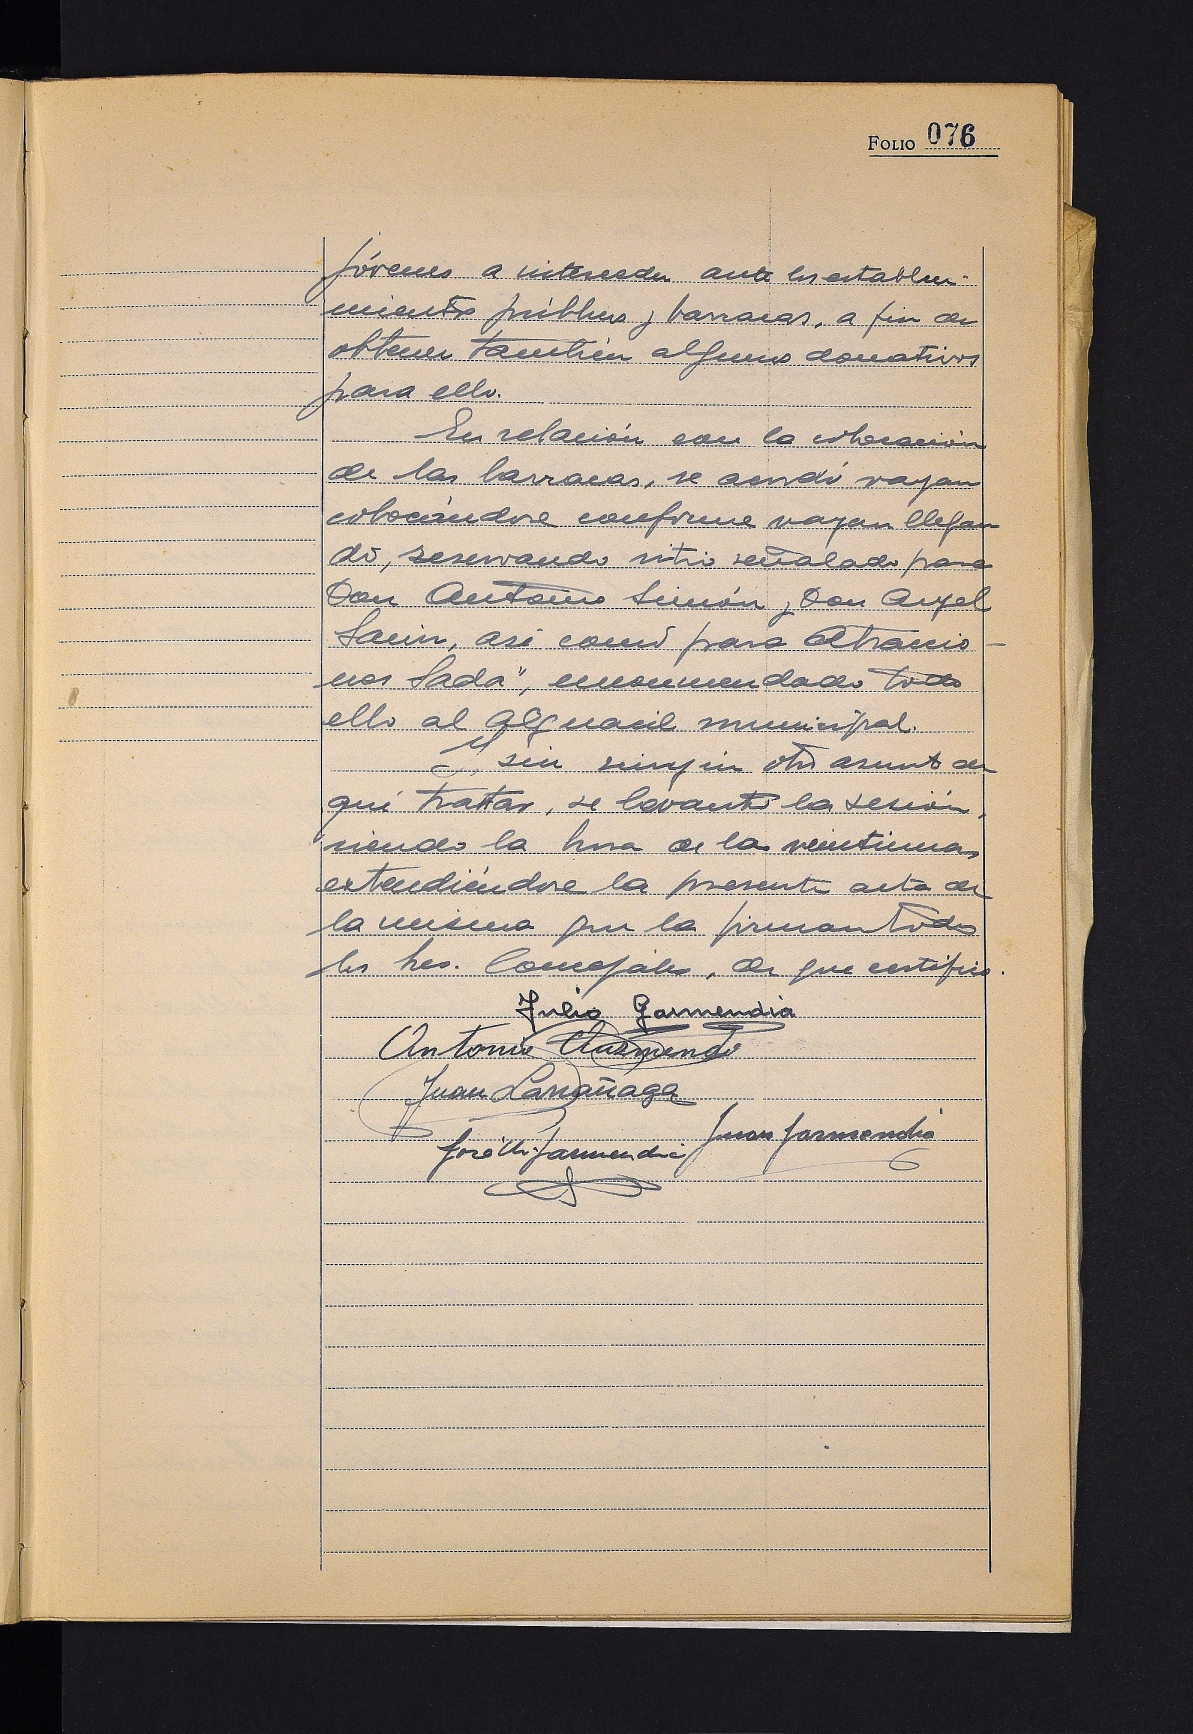 FOLIO 076
jóvenes a interceder ante los estableci-
mientos públicos y barracas, a fin de
obtener también algunos donativos
para ello.
En relación con la colocación
de las barracas, se acordó vayan
colocándose conforme vayan llegan
do, reservando sitio señalado para
Don Antonio Simón y Don Angel
Sacin, así como para Atraccio-
nes Sada", encomendado todo
ello al Alguacil municipal.
Y sin ningún otro asunto de
qué trattar, se levantó la sesión,
siendo la hora de las veintiuna,
extendiéndose la presente acta de
la misma que la firman todos
los Sres. Concejales, de que certifico.
Julio Garmendia
Antonio
Juan Larrañaga
Juan Garmendia
José M. Garmendia